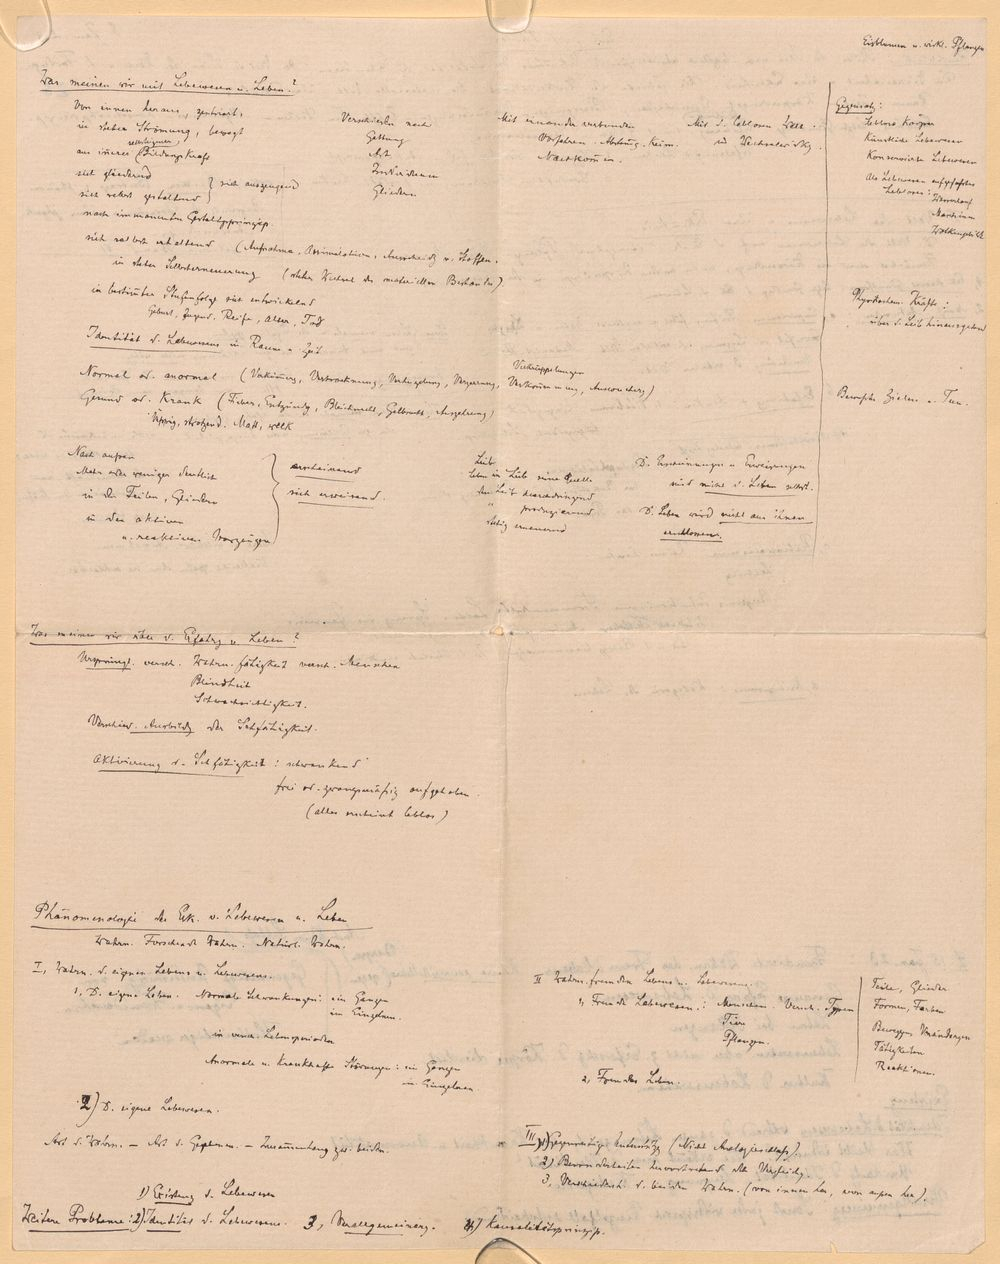 Eisblumen u. wirkl. Pflanzen
Was meinen wir mit Lebewesen u. Leben?
Von innen heraus, zentriert,
in steter Strömung, bewegt
selbsteigener
aus innerer Bildungskraft
sich gliedernd
sich selbst gestaltend } sich auszeugend
nach immanentem Gestaltprinzip.
sich selbst erhaltend (Aufnahme, Assimilation, Ausscheidg v. Stoffen.
in steter Selbsterneuerung (steter Wechsel des materiellen Bestandes)
in bestimmter Stufenfolge sich entwickelnd
Geburt, Jugend, Reife, Alter, Tod
Identität d. Lebewesens in Raum u. Zeit
Verschieden nach
Gattung
Art
Individuen
Gliedern
Mit einander verbunden
Vorfahren. Abstammg. Keim.
Nachkommen.
Mit d. leblosen Welt
in Wechselwirkg.
Gegensatz:
Leblose Körper
Künstliche Lebewesen
Konservierte Lebewesen
Als Lebewesen aufgefasstes
Lebloses: Wasserlauf
Maschinen
Wolkengebilde
Physikochem. Kräfte:
über d. Leib hinausgehend
Verkrüppelungen
Normal od. anormal (Verkümmerg, Vertrocknung, Verbiegung, Verzerrung, Verkommenung, Auswucherg)
Gesund od. Krank (Fieber, Entzündg, Bleichsucht, Gelbsucht, Auszehrung)
Üppig, strotzend. Matt, welk
Bewusste Ziele u. Tun.
Nach außen
Mehr oder weniger deutlich
in den Teilen, Gliedern
in den aktiven
u. reaktiven Vorgängen
erscheinend
sich erweisend.
Leib
Leben im Leib seine Quelle
den Leib durchdringend
" produzierend
stetig erneuernd
D. Erscheinungen u. Erweisungen
sind nicht d. Leben selbst.
D. Leben wird nicht aus ihnen
erschlossen.
Was meinen wir über d. Erfahrg v. Leben?
Ursprüngl. versch. Wahrn.fähigkeit versch. Menschen
Blindheit
Schwachsichtigkeit.
Verschied. Ausbildg der Sehfähigkeit.
Aktivierung d. Sehfähigkeit: schwankend
frei od. zwangsmäßig aufgehoben.
(alles erscheint leblos)
Phänomenologie der Erk. v. Lebewesen u. Leben
Wahrn. Forschende Wahrn. Natürl. Wahrn.
I, Wahrn. d. eigenen Lebens u. Lebewesens.
1, D. eigene Leben. Normale Schwankungen: im Ganzen
im Einzelnen.
in versch. Lebensperioden
Anormale u. Krankhafte Störungen: im Ganzen
im Einzelnen
2) D. eigene Lebewesen.
Art d. Wahrn. – Art d. Gegebenen. – Zusammenhang zw. beiden.
II Wahrn. fremden Lebens u. Lebewesens.
1, Fremde Lebewesen: Menschen. Versch. Typen
Tiere
Pflanzen.
2, Fremdes Leben
Teile, Glieder
Formen, Farben
Beweggen Veränderungen
Tätigkeiten
Reaktionen.
III, 1) Gegenseitige Unterstützg (Nicht Analogieschluss).
2) Besonderheiten hervortretend bei Vergleichg.
3, Verschiedenh. d. beiden Wahrn. (von innen her, von außen her).
1) Existenz d. Lebewesen
Weitere Probleme: 2) Identität d. Lebewesens. 3, Verallgemeinerg. 4) Kausalitätsprinzip.